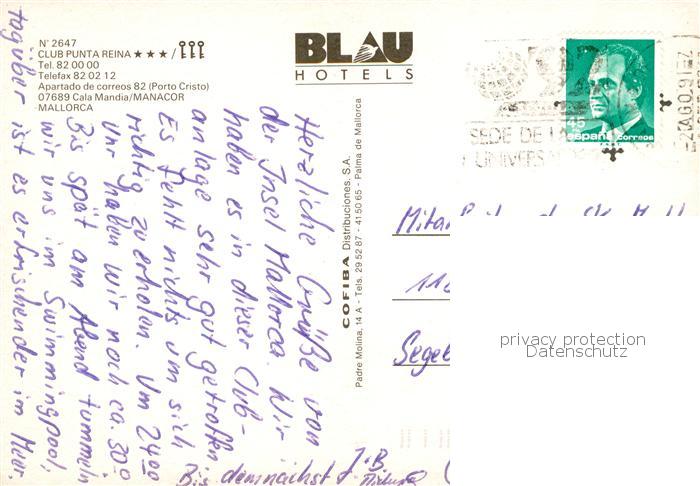 Nº 2647
CLUB PUNTA REINA ★★★/
Tel. 82 00 00
Telefax 82 02 12
Apartado de correos 82 (Porto Cristo)
07689 Cala Mandia/MANACOR
MALLORCA
BLAU
HOTELS
45
españa correos
SEDE DE
UNIVERSA
AGO 91
COFIBA Distribuciones, S.A.
Padre Molina, 14 A - Tels. 29 52 87 - 41 50 65 - Palma de Mallorca
Herzliche Grüße von
der Insel Mallorca. Wir
haben es in dieser Club-
anlage sehr gut getroffen.
Es fehlt nichts um sich
richtig zu erholen. Um 24 00
Uhr haben wir noch ca. 30°
Bis spät am Abend tummeln
wir uns im Swimmingpool,
tagüber ist es erfrischender im Meer.
Bis demnächst J.B.
Mitar
Segel
privacy protection
Datenschutz